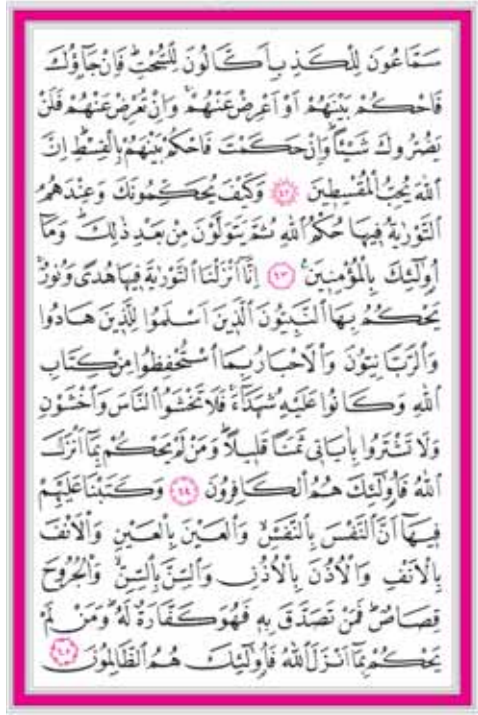 سَمَّاعُونَ لِلْكَذِبِ اَكَّالُونَ لِلسُّحْتِۜ فَاِنْ جَٓاؤُ۫كَ
فَاحْكُمْ بَيْنَهُمْ اَوْ اَعْرِضْ عَنْهُمْۚ وَاِنْ تُعْرِضْ عَنْهُمْ فَلَنْ
يَضُرُّوكَ شَيْـًٔاۜ وَاِنْ حَكَمْتَ فَاحْكُمْ بَيْنَهُمْ بِالْقِسْطِۜ اِنَّ
اللّٰهَ يُحِبُّ الْمُقْسِطٖينَ ﴿٤٢﴾ وَكَيْفَ يُحَكِّمُونَكَ وَعِنْدَهُمُ
التَّوْرٰيةُ فٖيهَا حُكْمُ اللّٰهِ ثُمَّ يَتَوَلَّوْنَ مِنْ بَعْدِ ذٰلِكَۜ وَمَٓا
اُو۬لٰٓئِكَ بِالْمُؤْمِنٖينَ ﴿٤٣﴾ اِنَّٓا اَنْزَلْنَا التَّوْرٰيةَ فٖيهَا هُدًى وَنُورٌۚ
يَحْكُمُ بِهَا النَّبِيُّونَ الَّذٖينَ اَسْلَمُوا لِلَّذٖينَ هَادُوا
وَالرَّبَّانِيُّونَ وَالْاَحْبَارُ بِمَا اسْتُحْفِظُوا مِنْ كِتَابِ
اللّٰهِ وَكَانُوا عَلَيْهِ شُهَدَٓاءَۚ فَلَا تَخْشَوُا النَّاسَ وَاخْشَوْنِ
وَلَا تَشْتَرُوا بِاٰيَاتٖي ثَمَنًا قَلٖيلًاۜ وَمَنْ لَمْ يَحْكُمْ بِمَٓا اَنْزَلَ
اللّٰهُ فَاُو۬لٰٓئِكَ هُمُ الْكَافِرُونَ ﴿٤٤﴾ وَكَتَبْنَا عَلَيْهِمْ
فٖيهَٓا اَنَّ النَّفْسَ بِالنَّفْسِۙ وَالْعَيْنَ بِالْعَيْنِ وَالْاَنْفَ
بِالْاَنْفِ وَالْاُذُنَ بِالْاُذُنِ وَالسِّنَّ بِالسِّنِّۙ وَالْجُرُوحَ
قِصَاصٌۜ فَمَنْ تَصَدَّقَ بِهٖ فَهُوَ كَفَّارَةٌ لَهُۜ وَمَنْ لَمْ
يَحْكُمْ بِمَٓا اَنْزَلَ اللّٰهُ فَاُو۬لٰٓئِكَ هُمُ الظَّالِمُونَ ﴿٤٥﴾